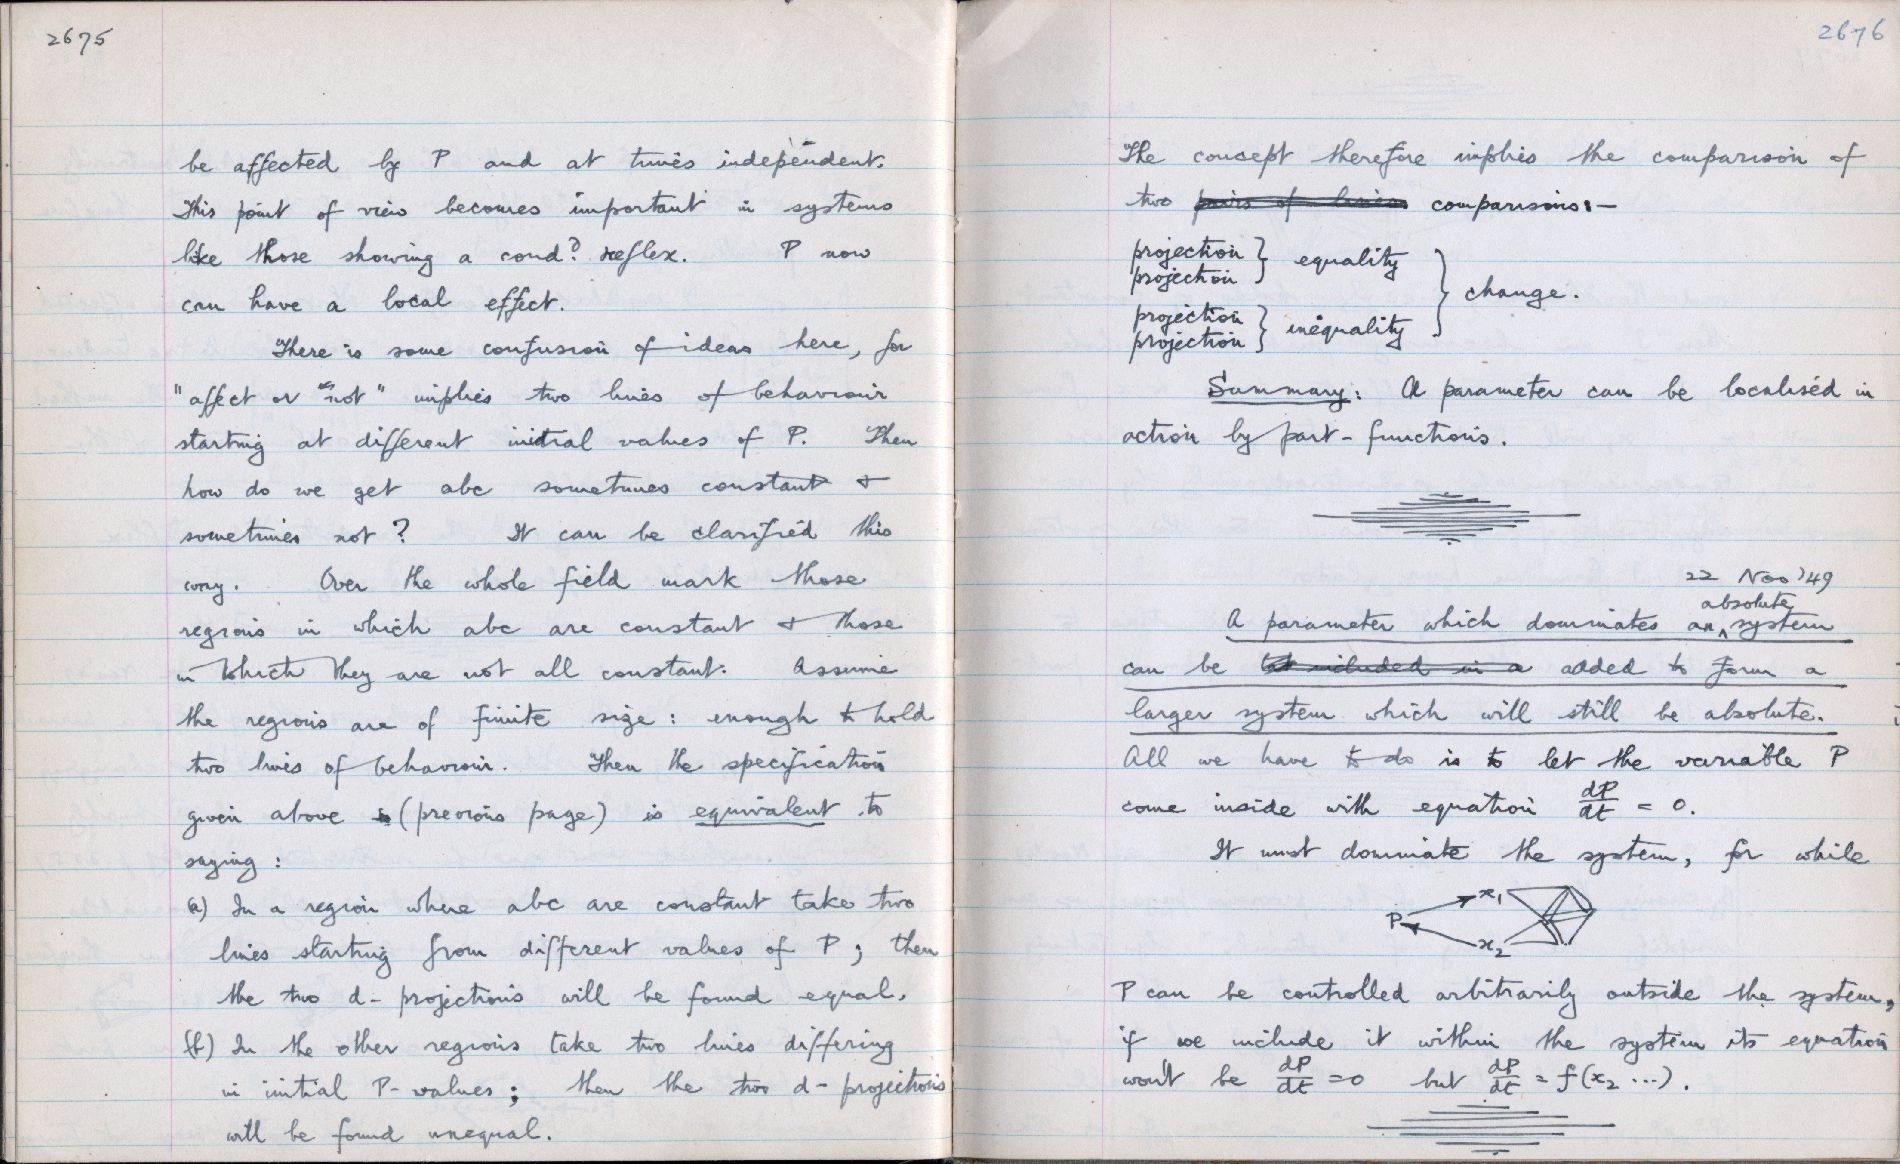 2675
be affected by P and at times independent.
This point of view becomes important in systems
like those showing a cond? reflex. P now
can have a local effect.
There is some confusion of ideas here, for
"affect or "not" implies two lines of behaviour
starting at different initial values of P. Then
how do we get abc sometimes constant &
sometimes not? It can be clarified this
way. Over the whole field mark those
regions in which abc are constant & those
in which they are not all constant. Assume
the regions are of finite size: enough to hold
two lines of behaviour. Then the specification
given above is (previous page) is equivalent to
saying:
(a) In a region where abc are constant take two
lines starting from different values of P; then
the two d-projections will be found equal.
(b) In the other regions take two lines differing
in initial P-values; then the two d-projections
will be found unequal.
2676
The concept therefore implies the comparison of
two pairs of lines comparisons:—
projection } equality
projection
} change.
projection } inequality
projection
Summary: A parameter can be localised in
action by part-functions.
22 Nov '49
absolute
A parameter which dominates an ^ system
can be included in a added to form a
larger system which will still be absolute.
All we have to do is to let the variable P
come inside with equation dP/dt = 0.
It must dominate the system, for while
P x₁
x₂
P can be controlled arbitrarily outside the system,
if we include it within the system its equation
won't be dP/dt = 0 but dP/dt = f(x₂ ...).